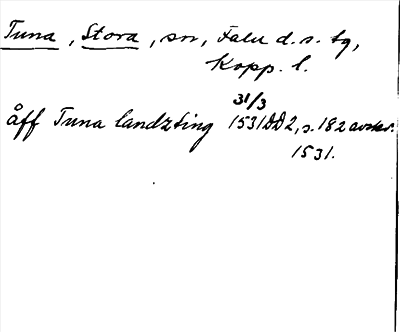 Tuna, Stora, sn, Falu d.s. tg,
Kopp. l.
31/3
åff Tuna landzting 1531 DD2, s. 182 avskr.
1531.